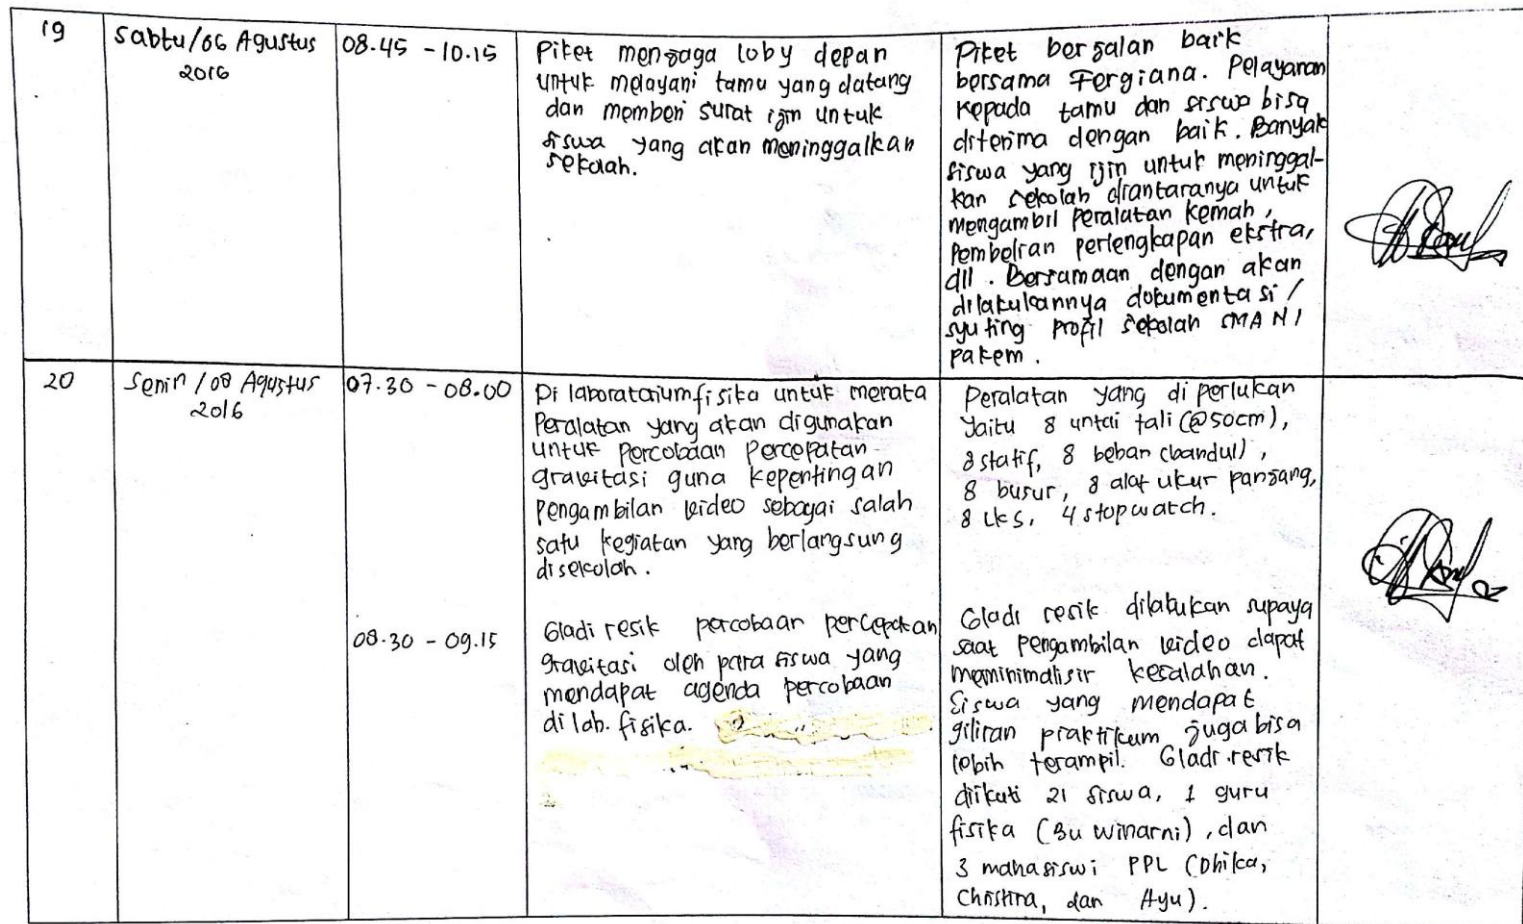 19
Sabtu/06 Agustus
2016
08.45 - 10.15
Piket menjaga loby depan
untuk melayani tamu yang datang
dan memberi surat ijin untuk
siswa yang akan meninggalkan
sekolah.
Piket berjalan baik
bersama Fergiana. Pelayanan
kepada tamu dan siswa bisa
diterima dengan baik. Banyak
siswa yang ijin untuk meninggal-
kan sekolah diantaranya untuk
mengambil peralatan kemah,
pembelian perlengkapan ekstra,
dll. Bersamaan dengan akan
dilakukannya dokumentasi/
syuting profil sekolah SMA N 1
Pakem.
20
Senin/08 Agustus
2016
07.30 - 08.00
Di laboratorium fisika untuk menata
Peralatan yang akan digunakan
untuk Percobaan Percepatan
gravitasi guna kepentingan
pengambilan video sebagai salah
satu kegiatan yang berlangsung
disekolah.
Peralatan yang di perlukan
yaitu 8 untai tali (@50cm),
8 statif, 8 beban (bandul),
8 busur, 8 alat ukur panjang,
8 LKS, 4 stopwatch.
08.30 - 09.15
Gladi resik percobaan percepatan
gravitasi oleh para siswa yang
mendapat agenda percobaan
di lab. fisika.
Gladi resik dilakukan supaya
saat pengambilan video dapat
meminimalisir kesalahan.
Siswa yang mendapat
giliran praktikum juga bisa
lebih terampil. Gladi resik
diikuti 21 siswa, 1 guru
fisika (Bu Winarni), dan
3 mahasiswi PPL (Dhika,
Christina, dan Ayu).